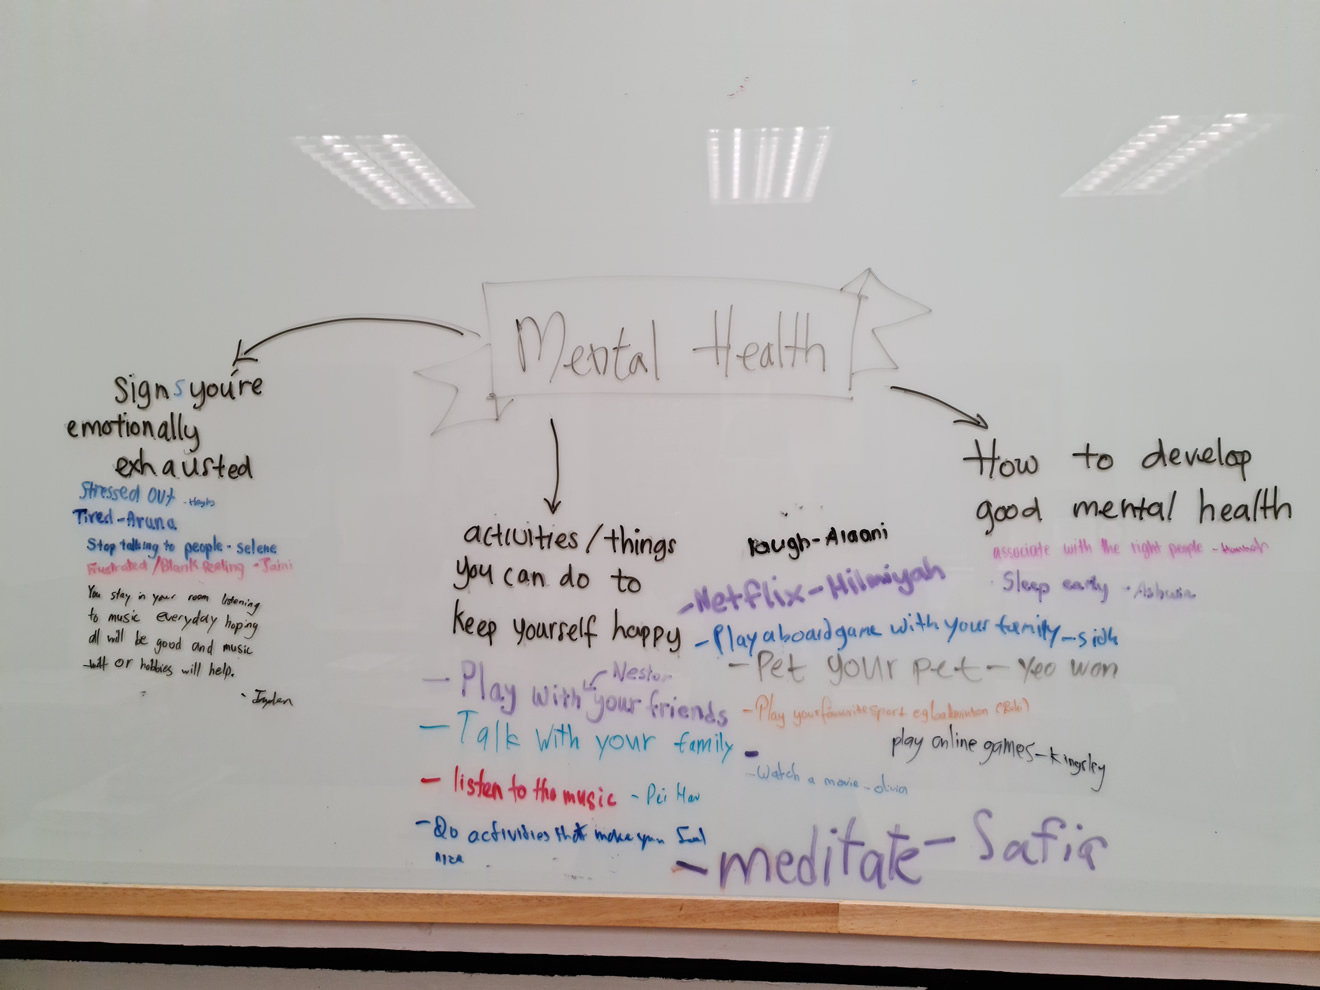 Mental Health
Signs you're
emotionally
exhausted
Stressed Out -
Tired - Aruna
Stop talking to people - selene
Frustrated / Blank feeling -
You stay in your room listening
to music everyday hoping
all will be good and music
or hobbies will help.
- Jayden
activities / things
you can do to
keep yourself happy
- Play with your friends
Nestor
- Talk with your family
- listen to the music - Pei
- Do activities that make you
laugh - Alaani
- Netflix - Hilmiyah
- Play a board game with your family - sidh
- Pet your pet - Yeo won
- Play your favourite sport eg badminton
play online games - Kingsley
- Watch a movie - olivia
- meditate - Safia
How to develop
good mental health
associate with the right people - Hannah
Sleep early -